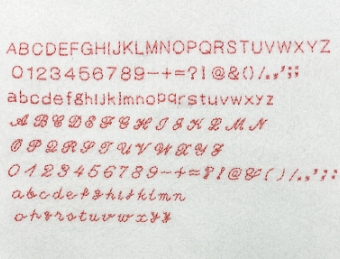 ABCDEFGHIJKLMNOPQRSTUVWXYZ
0123456789-+=?!@&()/.,';:
abcdefghijklmnopqrstuvwxyz
ABCDEFGHIJKLMN
OPQRSTUVWXYZ
0123456789-+=?!@&()/.,';:
abcdefghijklmn
opqrstuvwxyz